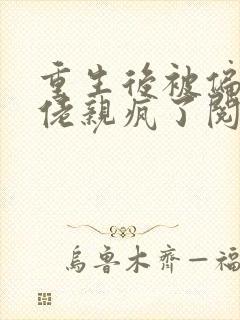 重生后被偏
佬亲疯了阅
乌鲁木齐—福